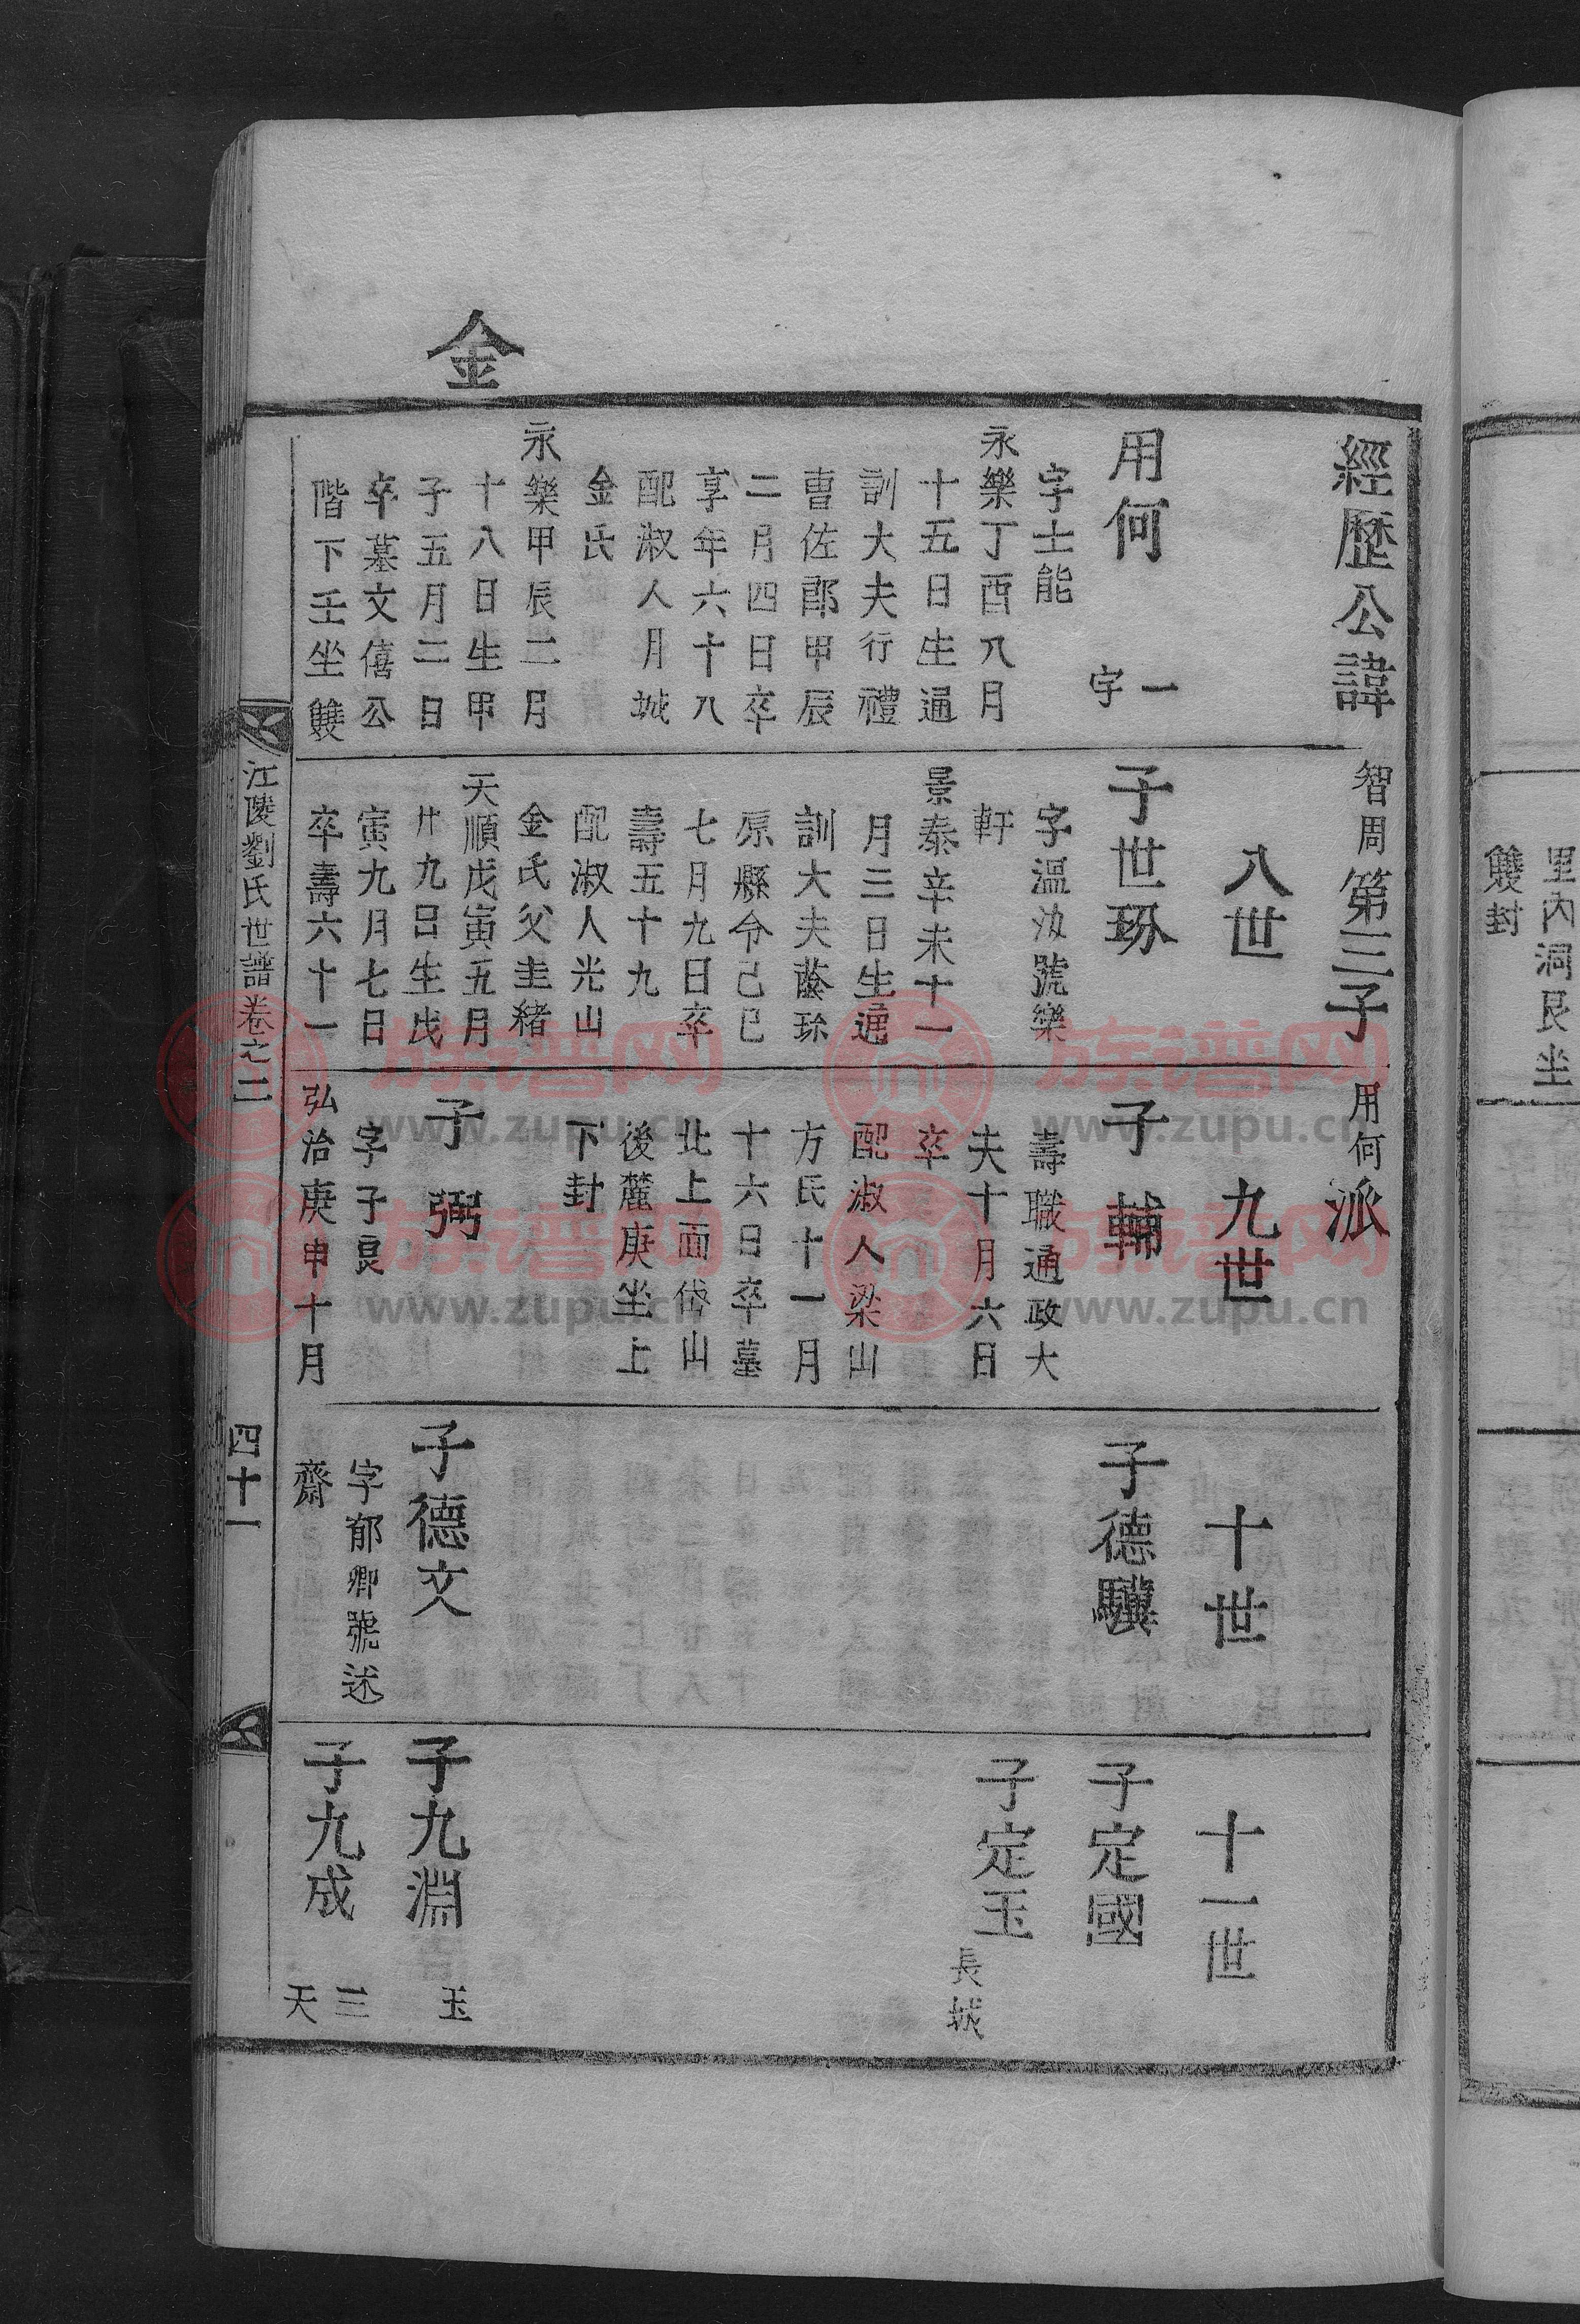 金
經歷公諱智周第三子用何派
用何
一
字
字士能
永樂丁酉八月
十五日生通
訓大夫行禮
曹佐郎甲辰
二月四日卒
享年六十八
配淑人月城
金氏
永樂甲辰二月
十八日生甲
子五月二日
卒墓文僖公
階下壬坐雙
八世
子世玢
字溫汝號樂
軒
景泰辛未十一
月三日生通
訓大夫蔭珎
原縣令己巳
七月九日卒
壽五十九
配淑人光山
金氏父圭緖
天順戊寅五月
廿九日生戊
寅九月七日
卒壽六十一
九世
子輔
壽職通政大
夫十月六日
卒
配淑人梁山
方氏十一月
十六日卒墓
北上面岱山
後麓庚坐上
下封
子弼
字子良
弘治庚申十月
十世
子德驥
子德文
字郁卿號述
齋
十一世
子定國
子定玉
長城
子九淵
玉
子九成
三
天
江陵劉氏世譜卷之二
四十一
里內洞艮坐
雙封
族谱网
www.zupu.cn
族谱网
www.zupu.cn
族谱网
www.zupu.cn
族谱网
www.zupu.cn